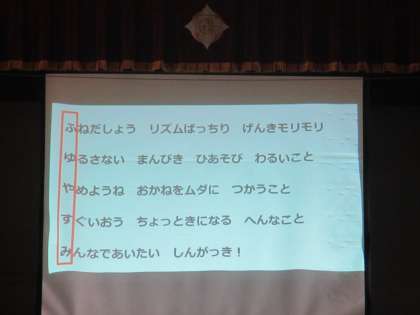 ふねだしょう リズムばっちり げんきモリモリ
ゆるさない まんびき ひあそび わるいこと
やめようね おかねをムダに つかうこと
すぐいおう ちょっときになる へんなこと
みんなであいたい しんがっき!